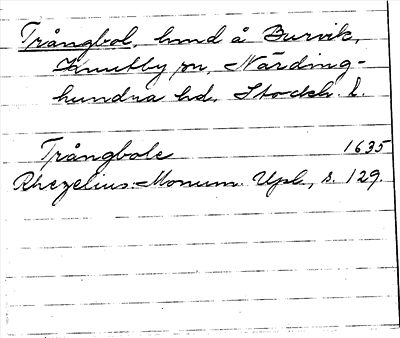 Trångbol, hmd å Burvik,
Knutby sn, Närding-
hundra hd. Stockh. l.
Trångbole 1635
Rhezelius: Monum. Upl., s. 129.